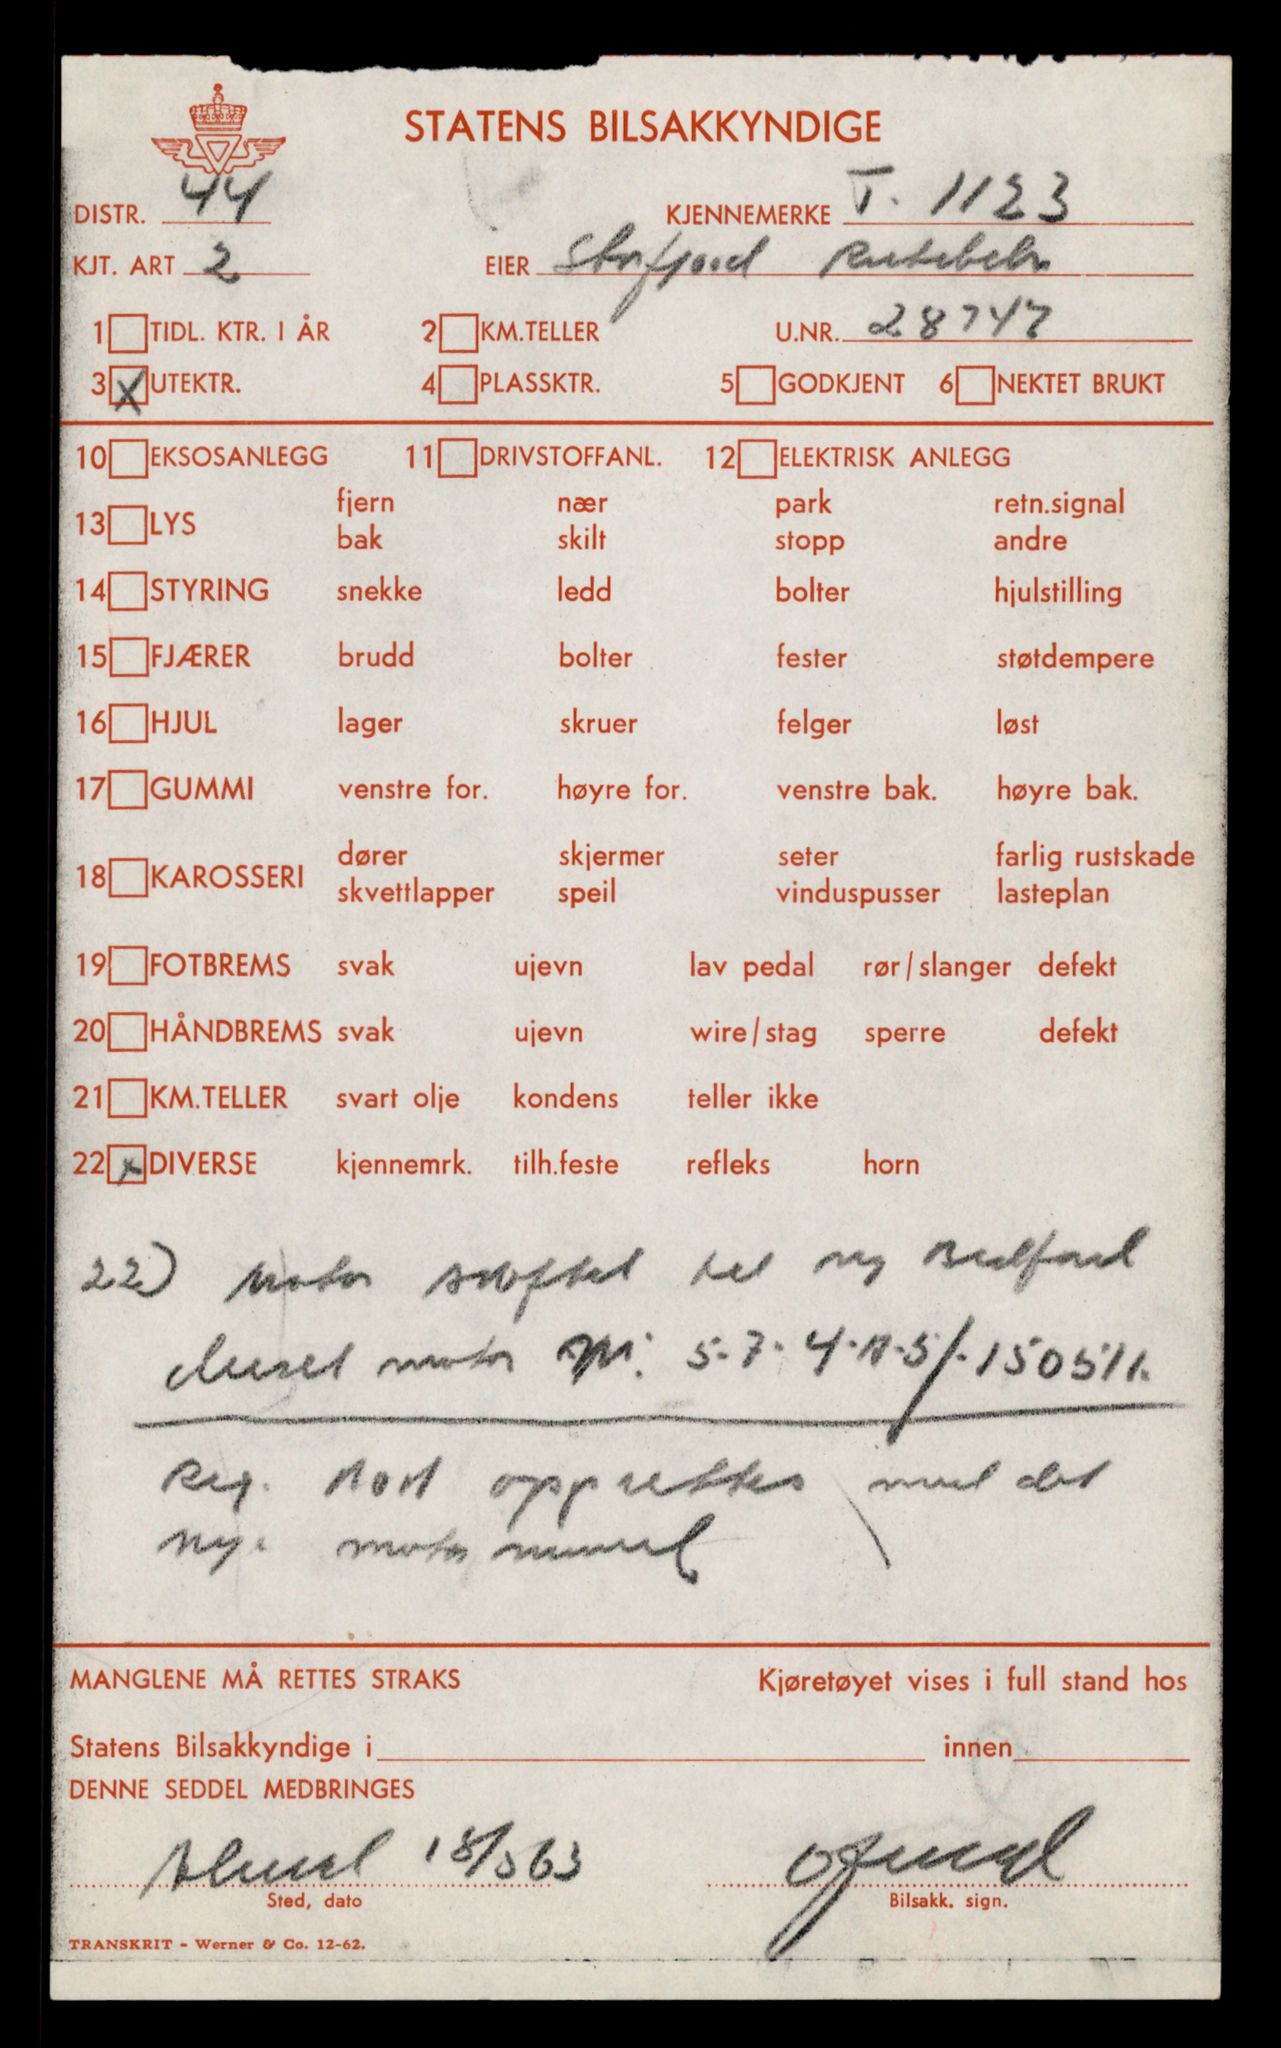 STATENS BILSAKKYNDIGE
DISTR. 44 KJENNEMERKE T. 1123
KJT. ART 2 EIER Storfjord Rutebiler
1 TIDL. KTR. I ÅR 2 KM.TELLER U.NR. 28747
3 X UTEKTR. 4 PLASSKTR. 5 GODKJENT 6 NEKTET BRUKT
10 EKSOSANLEGG 11 DRIVSTOFFANL. 12 ELEKTRISK ANLEGG
fjern nær park retn.signal
13 LYS
bak skilt stopp andre
14 STYRING snekke ledd bolter hjulstilling
15 FJÆRER brudd bolter fester støtdempere
16 HJUL lager skruer felger løst
17 GUMMI venstre for. høyre for. venstre bak. høyre bak.
dører skjermer seter farlig rustskade
18 KAROSSERI
skvettlapper speil vinduspusser lasteplan
19 FOTBREMS svak ujevn lav pedal rør/slanger defekt
20 HÅNDBREMS svak ujevn wire/stag sperre defekt
21 KM.TELLER svart olje kondens teller ikke
22 x DIVERSE kjennemrk. tilh.feste refleks horn
22) Motor skiftet til ny Bedford
diesel motor nr. 5-7-4-A-5/-150511.
Reg. kort opprettes med det
nye motor nummer
MANGLENE MÅ RETTES STRAKS Kjøretøyet vises i full stand hos
Statens Bilsakkyndige i innen
DENNE SEDDEL MEDBRINGES
18/563
Sted, dato Bilsakk. sign.
TRANSKRIT - Werner & Co. 12-62.